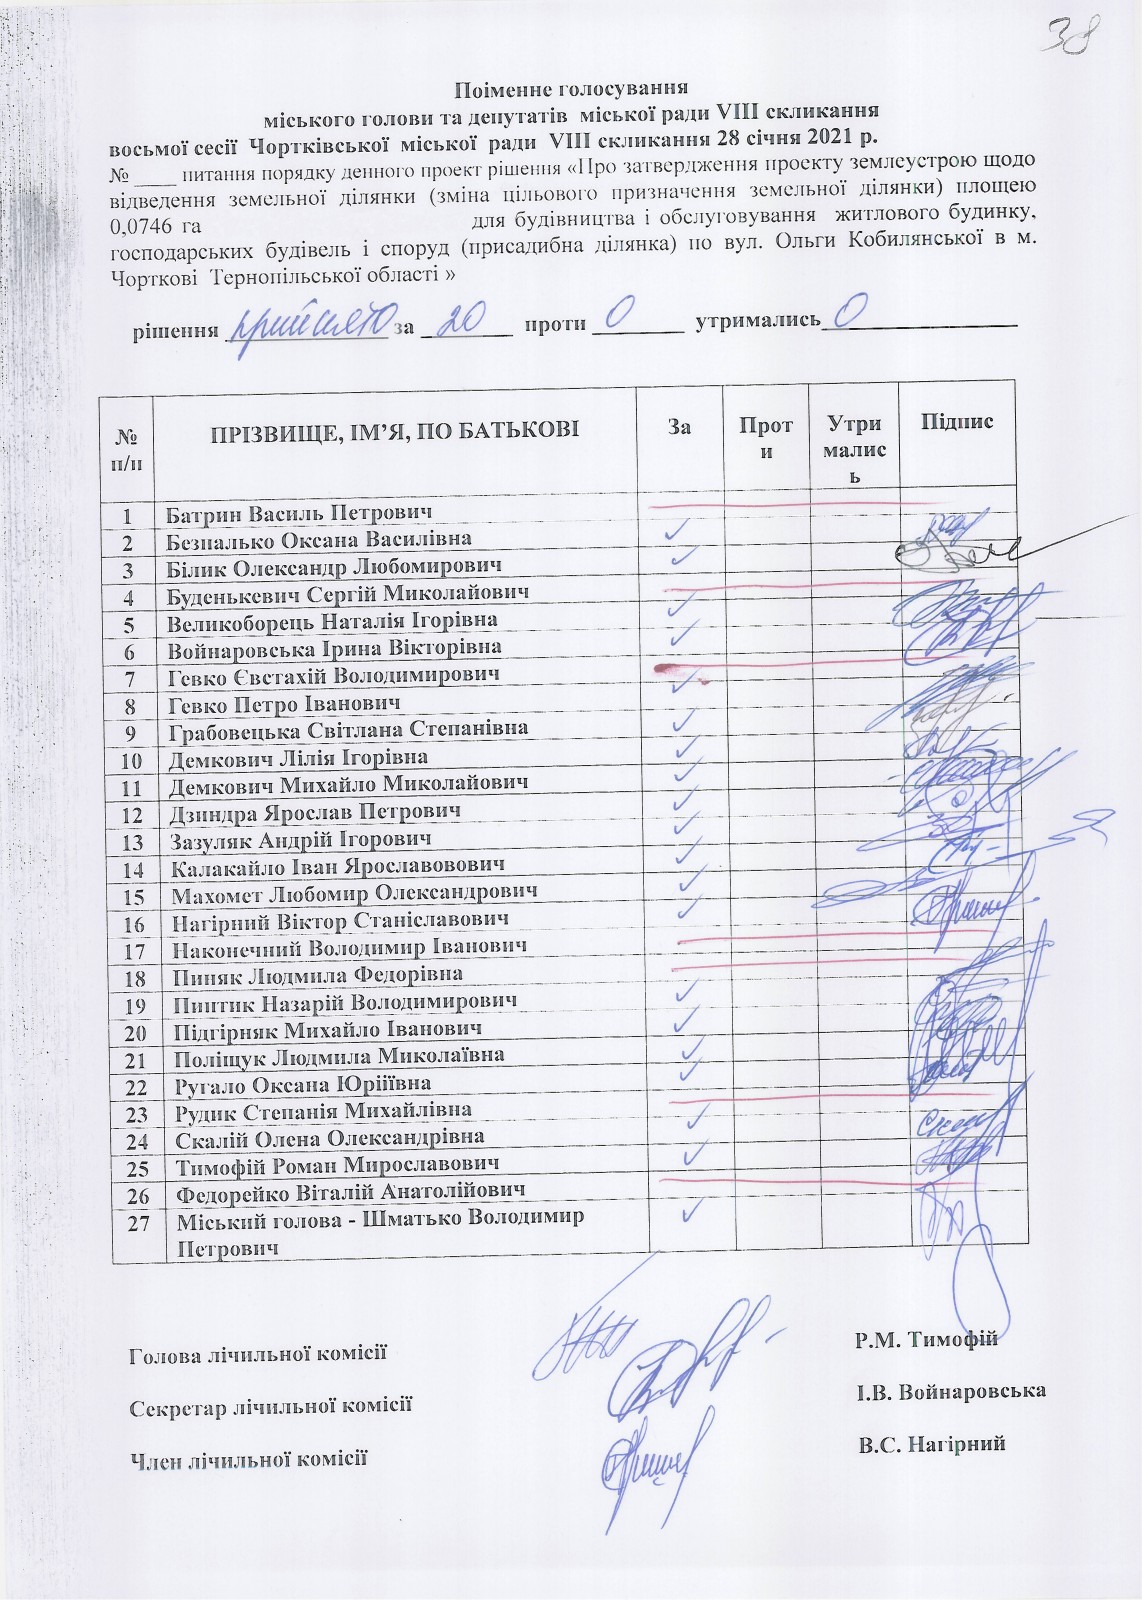 38
Поіменне голосування
міського голови та депутатів міської ради VIII скликання
восьмої сесії Чортківської міської ради VIII скликання 28 січня 2021 р.
№ ____ питання порядку денного проект рішення «Про затвердження проекту землеустрою щодо
відведення земельної ділянки (зміна цільового призначення земельної ділянки) площею
0,0746 га для будівництва і обслуговування житлового будинку,
господарських будівель і споруд (присадибна ділянка) по вул. Ольги Кобилянської в м.
Чорткові Тернопільської області »
рішення прийнято за 20 проти 0 утримались 0
№ п/п ПРІЗВИЩЕ, ІМ’Я, ПО БАТЬКОВІ За Проти Утримались Підпис
1 Батрин Василь Петрович
2 Безпалько Оксана Василівна ✓
3 Білик Олександр Любомирович ✓
4 Буденькевич Сергій Миколайович
5 Великоборець Наталія Ігорівна ✓
6 Войнаровська Ірина Вікторівна ✓
7 Гевко Євстахій Володимирович
8 Гевко Петро Іванович ✓
9 Грабовецька Світлана Степанівна ✓
10 Демкович Лілія Ігорівна ✓
11 Демкович Михайло Миколайович ✓
12 Дзиндра Ярослав Петрович ✓
13 Зазуляк Андрій Ігорович ✓
14 Калакайло Іван Ярославовович ✓
15 Махомет Любомир Олександрович ✓
16 Нагірний Віктор Станіславович ✓
17 Наконечний Володимир Іванович
18 Пиняк Людмила Федорівна
19 Пиптик Назарій Володимирович ✓
20 Підгірняк Михайло Іванович ✓
21 Поліщук Людмила Миколаївна ✓
22 Ругало Оксана Юріїївна ✓
23 Рудик Степанія Михайлівна
24 Скалій Олена Олександрівна ✓
25 Тимофій Роман Мирославович ✓
26 Федорейко Віталій Анатолійович
27 Міський голова - Шматько Володимир ✓
Петрович
Голова лічильної комісії Р.М. Тимофій
Секретар лічильної комісії І.В. Войнаровська
Член лічильної комісії В.С. Нагірний